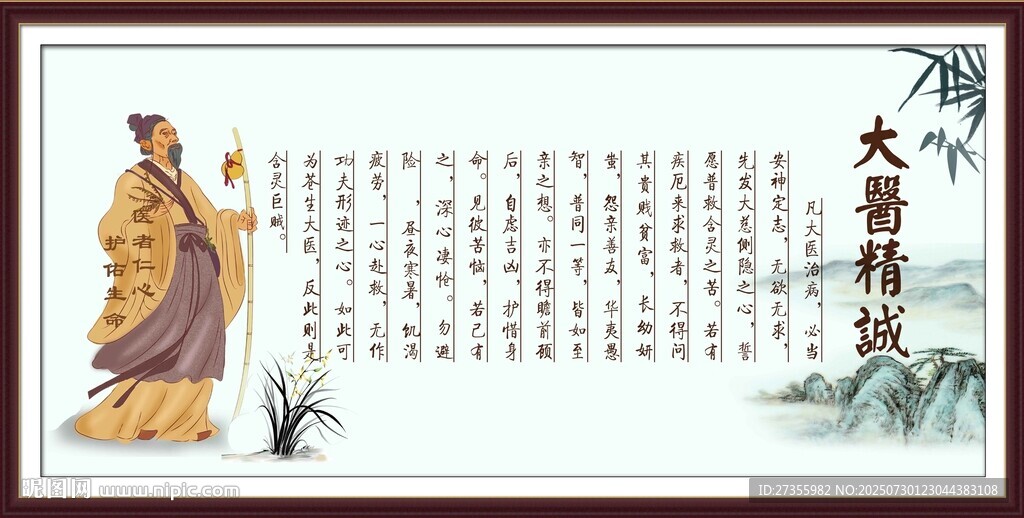 大醫精誠
凡大医治病，必当
安神定志，无欲无求，
先发大慈恻隐之心，誓
愿普救含灵之苦。若有
疾厄来求救者，不得问
其贵贱贫富，长幼妍
蚩，怨亲善友，华夷愚
智，普同一等，皆如至
亲之想。亦不得瞻前顾
后，自虑吉凶，护惜身
命。见彼苦恼，若己有
之，深心凄怆。勿避
险，昼夜寒暑，饥渴
疲劳，一心赴救，无作
功夫形迹之心。如此可
为苍生大医，反此则是
含灵巨贼。
医者仁心
护佑生命
昵图网 www.nipic.com
ID:27355982 NO:20250730123044383108